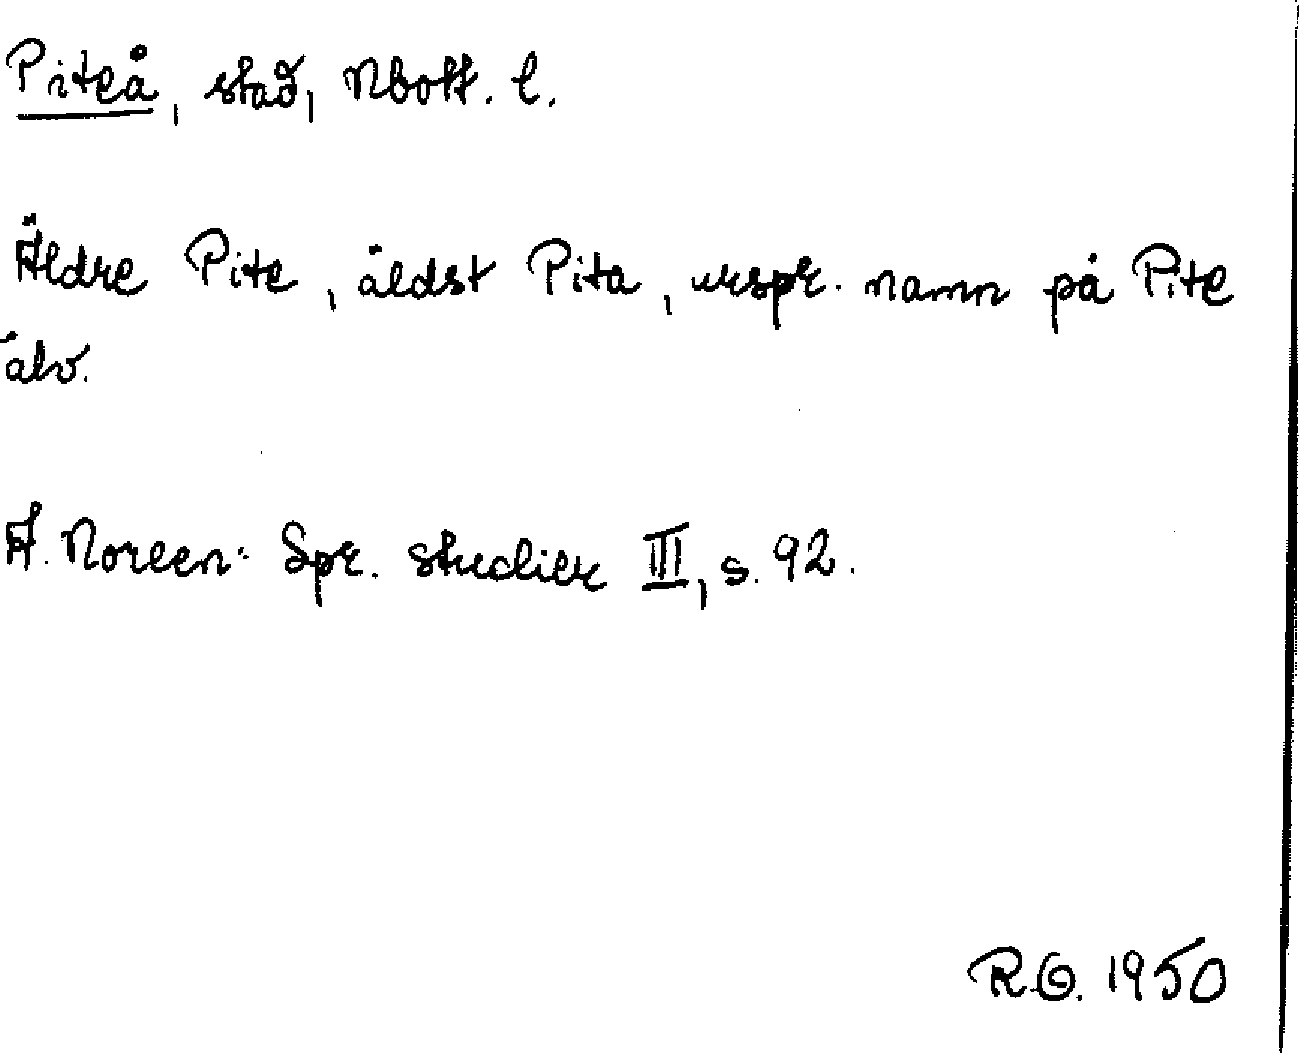 Piteå, stad, Nbott. l.
Äldre Pite, äldst Pita, urspr. namn på Pite
älv.
A. Noreen: Spr. studier III, s. 92.
R.G. 1950